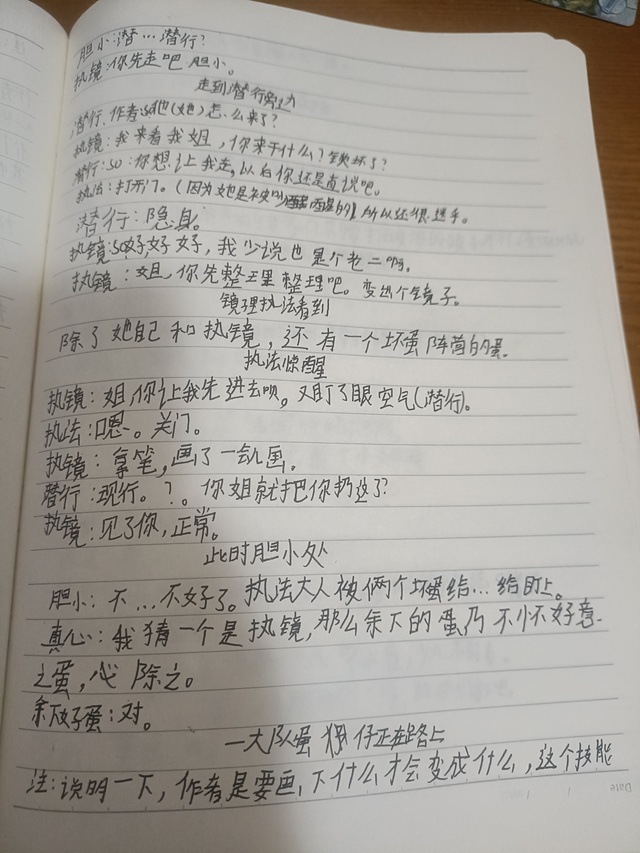 胆小：潜…潜行？
执镜：你先走吧 胆小。
走到潜行旁边
潜行、作者so他(她)怎么来了？
执镜：我来看我姐，你来干什么？
潜行：so：你想让我走，以后你还是直说吧。
执法：打开门。(因为她是被叫醒的，所以还很
潜行：隐身。
执镜：so好好好，我少说也是个老二啊。
执镜：姐，你先整理整理吧。变出个镜子。
镜理执法看到
除了她自己和执镜，还有一个坏蛋阵营的蛋。
执法惊醒
执镜：姐，你让我先进去呗。又盯了眼空气(潜行)。
执法：嗯。关门。
执镜：拿笔，画了一会儿画。
潜行：现行。？。你姐就把你扔这了？
执镜：见了你，正常。
此时胆小处
胆小：不…不好了。执法大人被俩个坏蛋给…给盯上。
真心：我猜一个是执镜，那么余下的蛋乃不怀好意
之蛋，必除之。
余下好蛋：对。
一大队蛋 仔正在路上
注：说明一下，作者是要画下什么才会变成什么，这个技能
Date